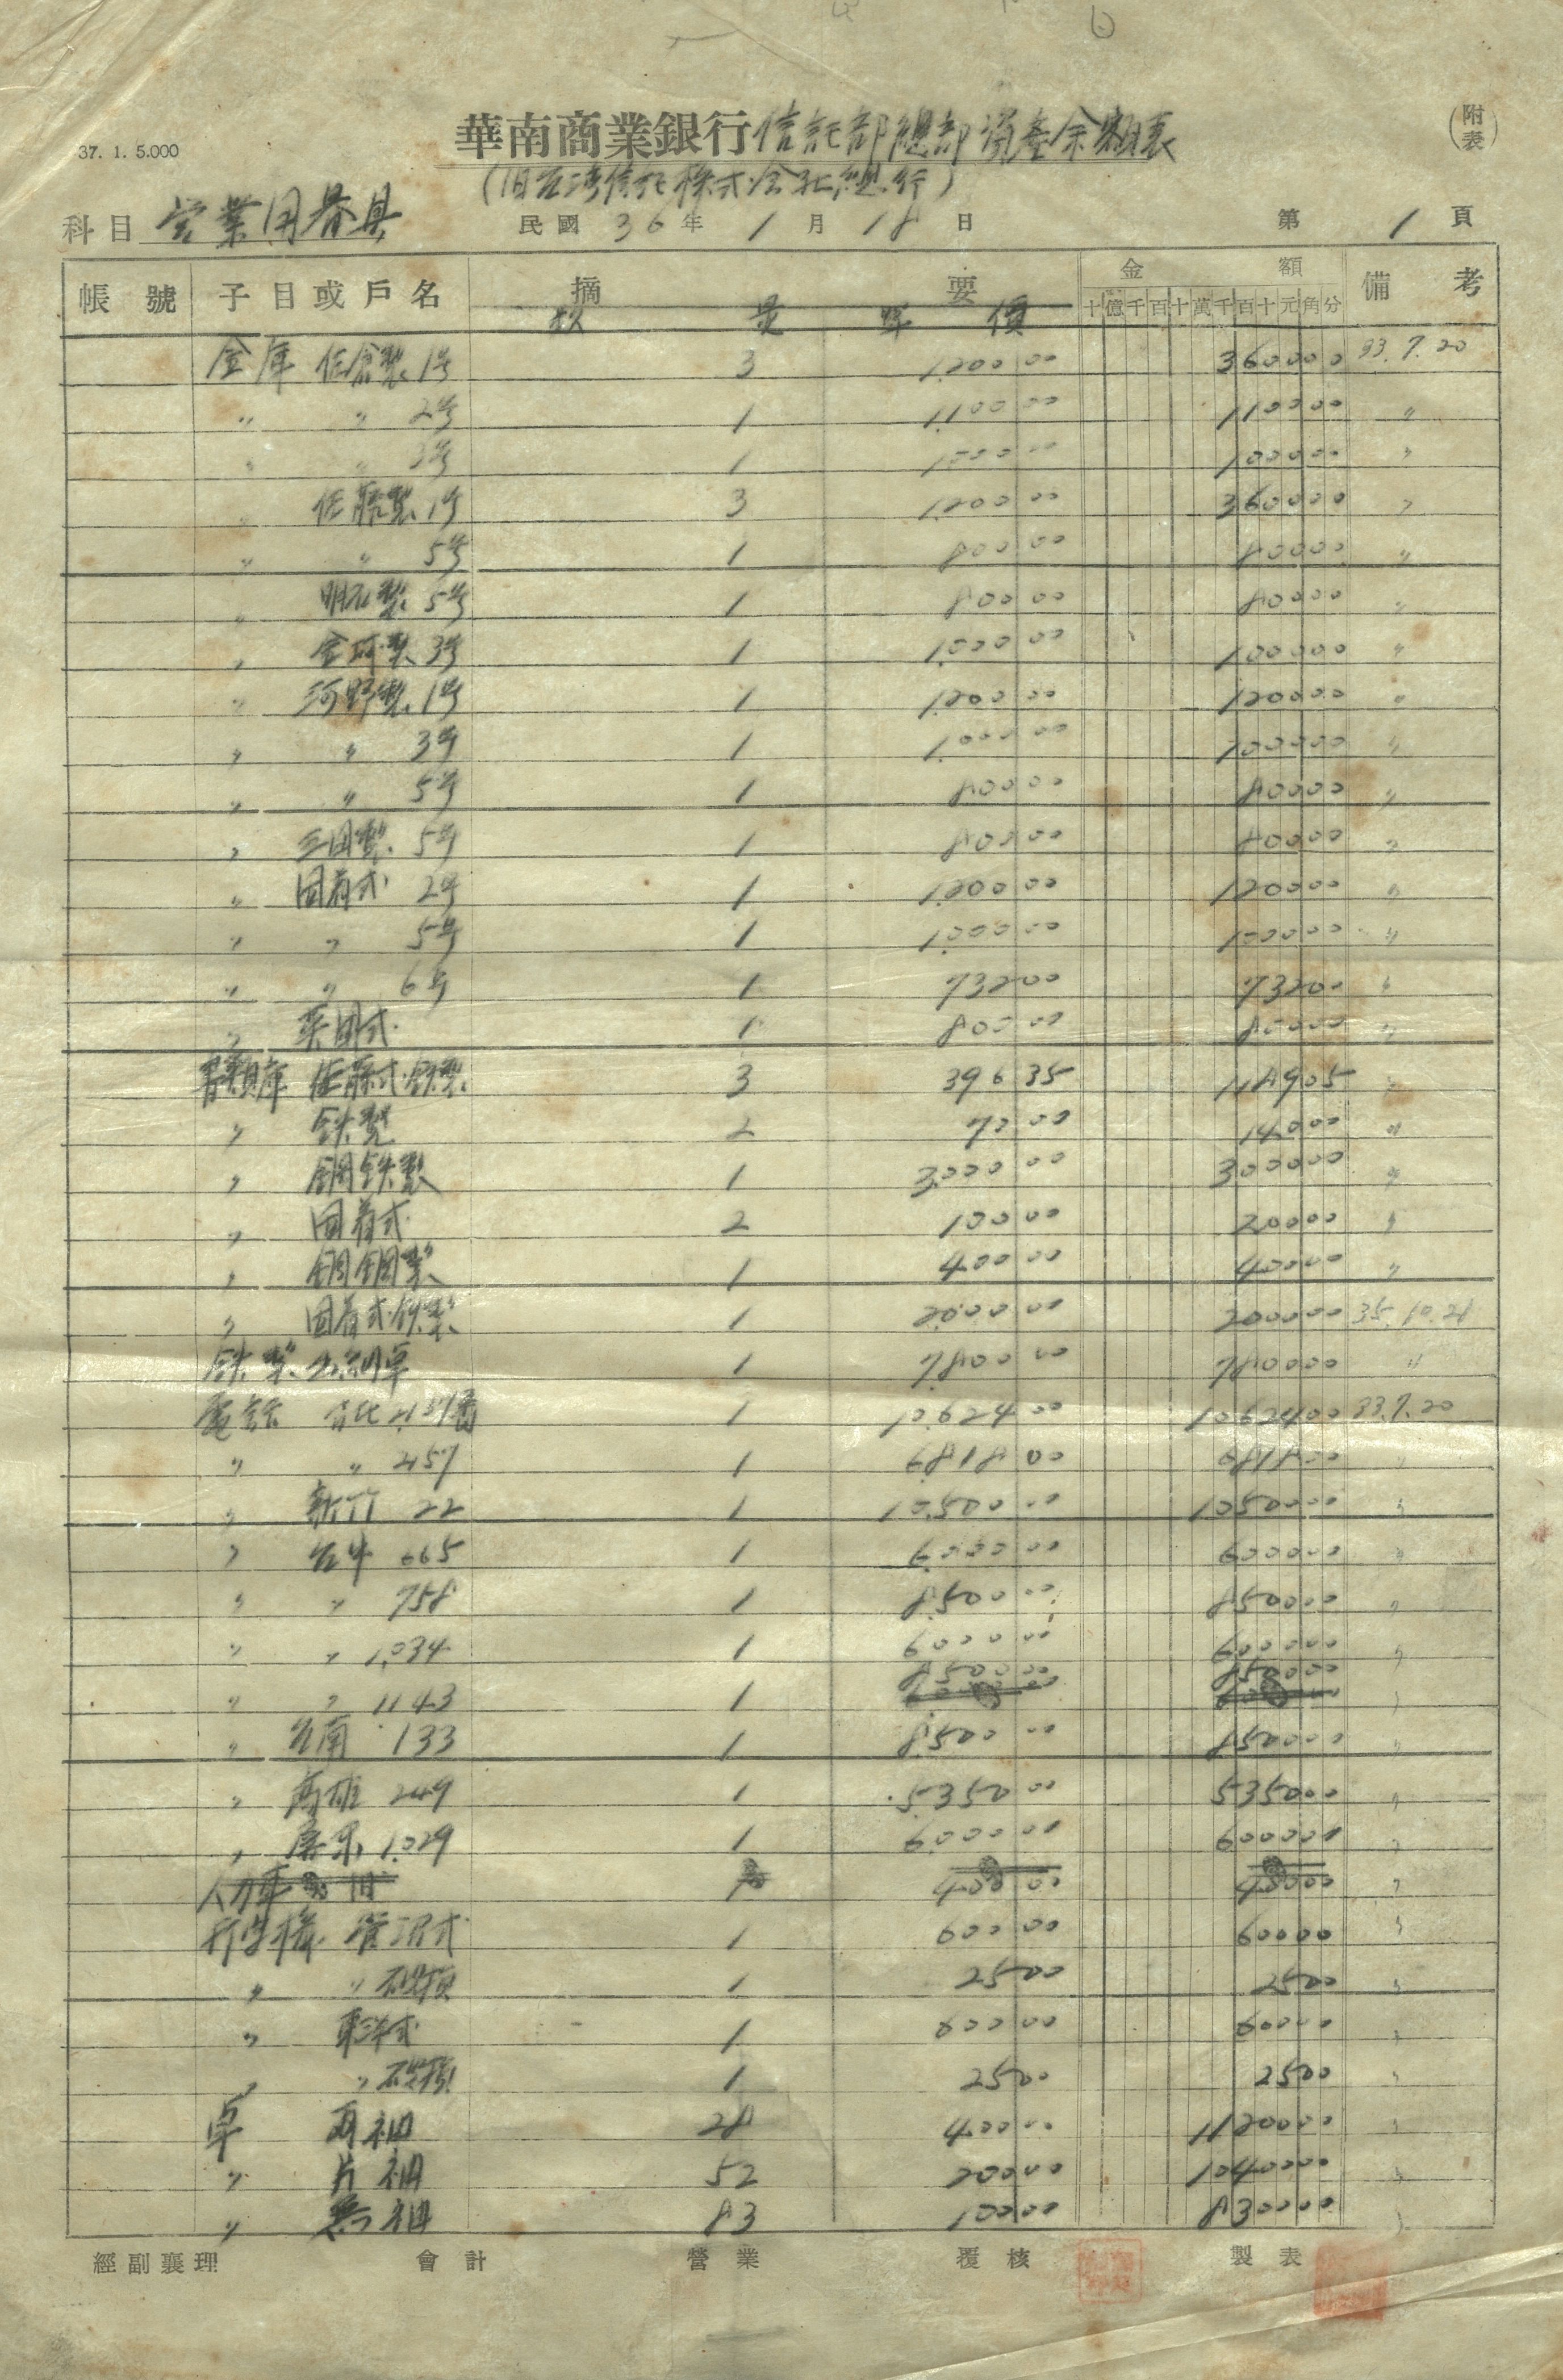 37. 1. 5.000
華南商業銀行信託部總部資產余額表
(附表)
(旧台湾信托株式会社總行)
科目 営業用器具 民國 36 年 1 月 18 日 第 1 頁
帳號 子目或戶名 摘要 金額 備考
数量 単價 十億千百十萬千百十元角分
金庫 佐倉製 1号 3 1,200 00 3600 00 33.7.20
〃 〃 2号 1 1,100 00 1100 00 〃
〃 〃 3号 1 1,000 00 1000 00 〃
〃 佐藤製 1号 3 1,200 00 3600 00 〃
〃 〃 5号 1 800 00 800 00 〃
〃 明石製 5号 1 800 00 800 00 〃
〃 金河製 3号 1 1,000 00 1000 00 〃
〃 河野製 1号 1 1,200 00 1200 00 〃
〃 〃 3号 1 1,000 00 1000 00 〃
〃 〃 5号 1 800 00 800 00 〃
〃 三國製 5号 1 800 00 800 00 〃
〃 固着式 2号 1 1,200 00 1200 00 〃
〃 〃 5号 1 1,000 00 1000 00 〃
〃 〃 6号 1 732 00 732 00 〃
〃 英国式 1 800 00 800 00 〃
書類庫 佐藤式鉄製 3 396 35 1189 05 〃
〃 鉄製 2 70 00 140 00 〃
〃 鋼鉄製 1 3,000 00 3000 00 〃
〃 固着式 2 100 00 200 00 〃
〃 鋼製 1 400 00 400 00 〃
〃 固着式鉄製 1 2,000 00 2000 00 35.10.28
鉄製出納車 1 7,800 00 7800 00 〃
電話 台北 2,137番 1 10,624 00 10624 00 33.7.20
〃 〃 2457 1 6,818 00 6818 00 〃
〃 新竹 22 1 10,500 00 10500 00 〃
〃 台中 665 1 6,000 00 6000 00 〃
〃 〃 758 1 8,500 00 8500 00 〃
〃 〃 1,034 1 6000 00 6000 00 〃
〃 〃 1143 1 8500 00 8500 00 〃
〃 台南 133 1 8,500 00 8500 00 〃
〃 高雄 249 1 5,350 00 5350 00 〃
〃 屏東 1,029 1 6,000 00 6000 00 〃
人力車 旧 400 00 400 00 〃
打字機 菅沼式 1 600 00 600 00 〃
〃 〃 破損 1 25 00 25 00 〃
〃 東洋式 1 600 00 600 00 〃
〃 〃 破損 1 25 00 25 00 〃
卓 両袖 28 400 00 11200 00 〃
〃 片袖 52 200 00 10400 00 〃
〃 無袖 83 100 00 8300 00 〃
經副襄理 會計 營業 覆核 製表